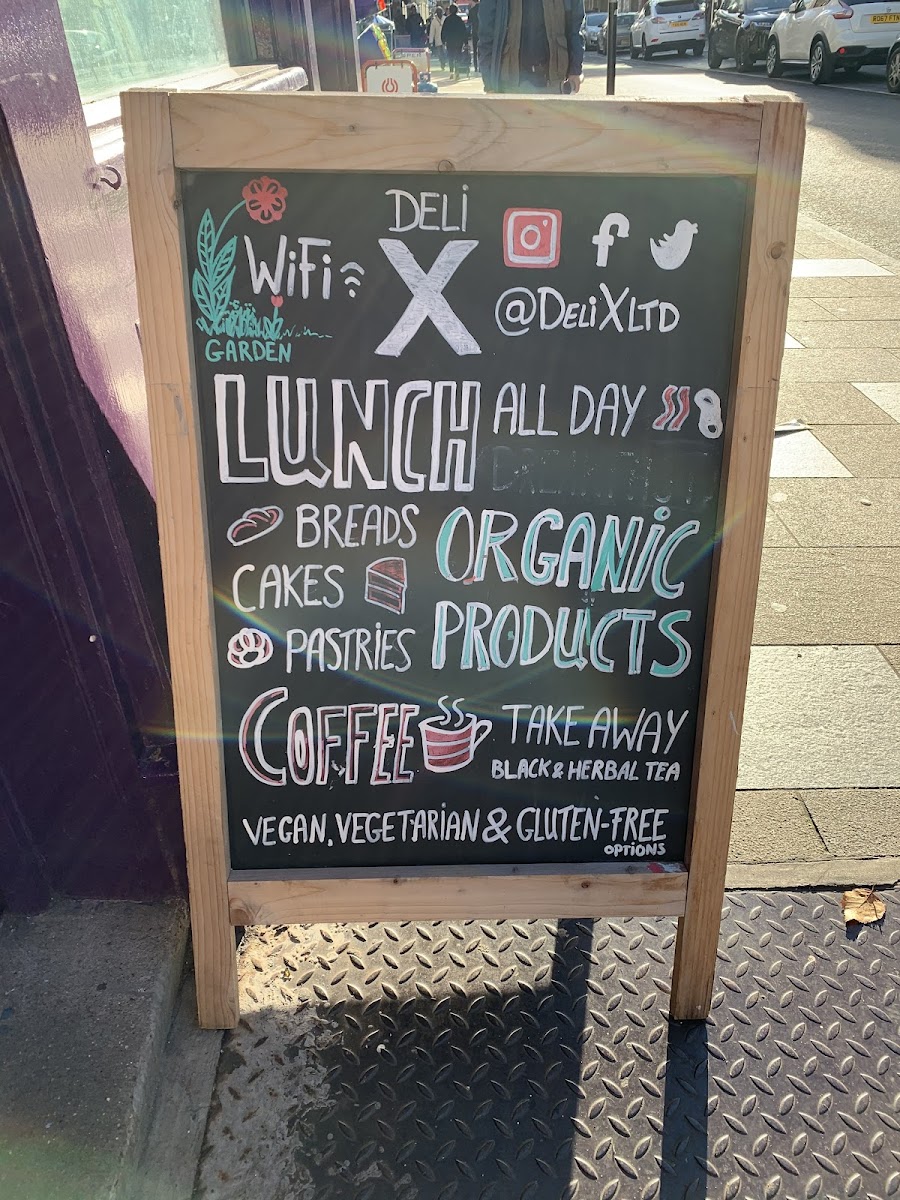 DELI
X
WiFi
GARDEN
@DELIXLTD
LUNCH
ALL DAY
BREADS
CAKES
PASTRIES
ORGANIC
PRODUCTS
COFFEE
TAKE AWAY
BLACK & HERBAL TEA
VEGAN, VEGETARIAN & GLUTEN-FREE
OPTIONS